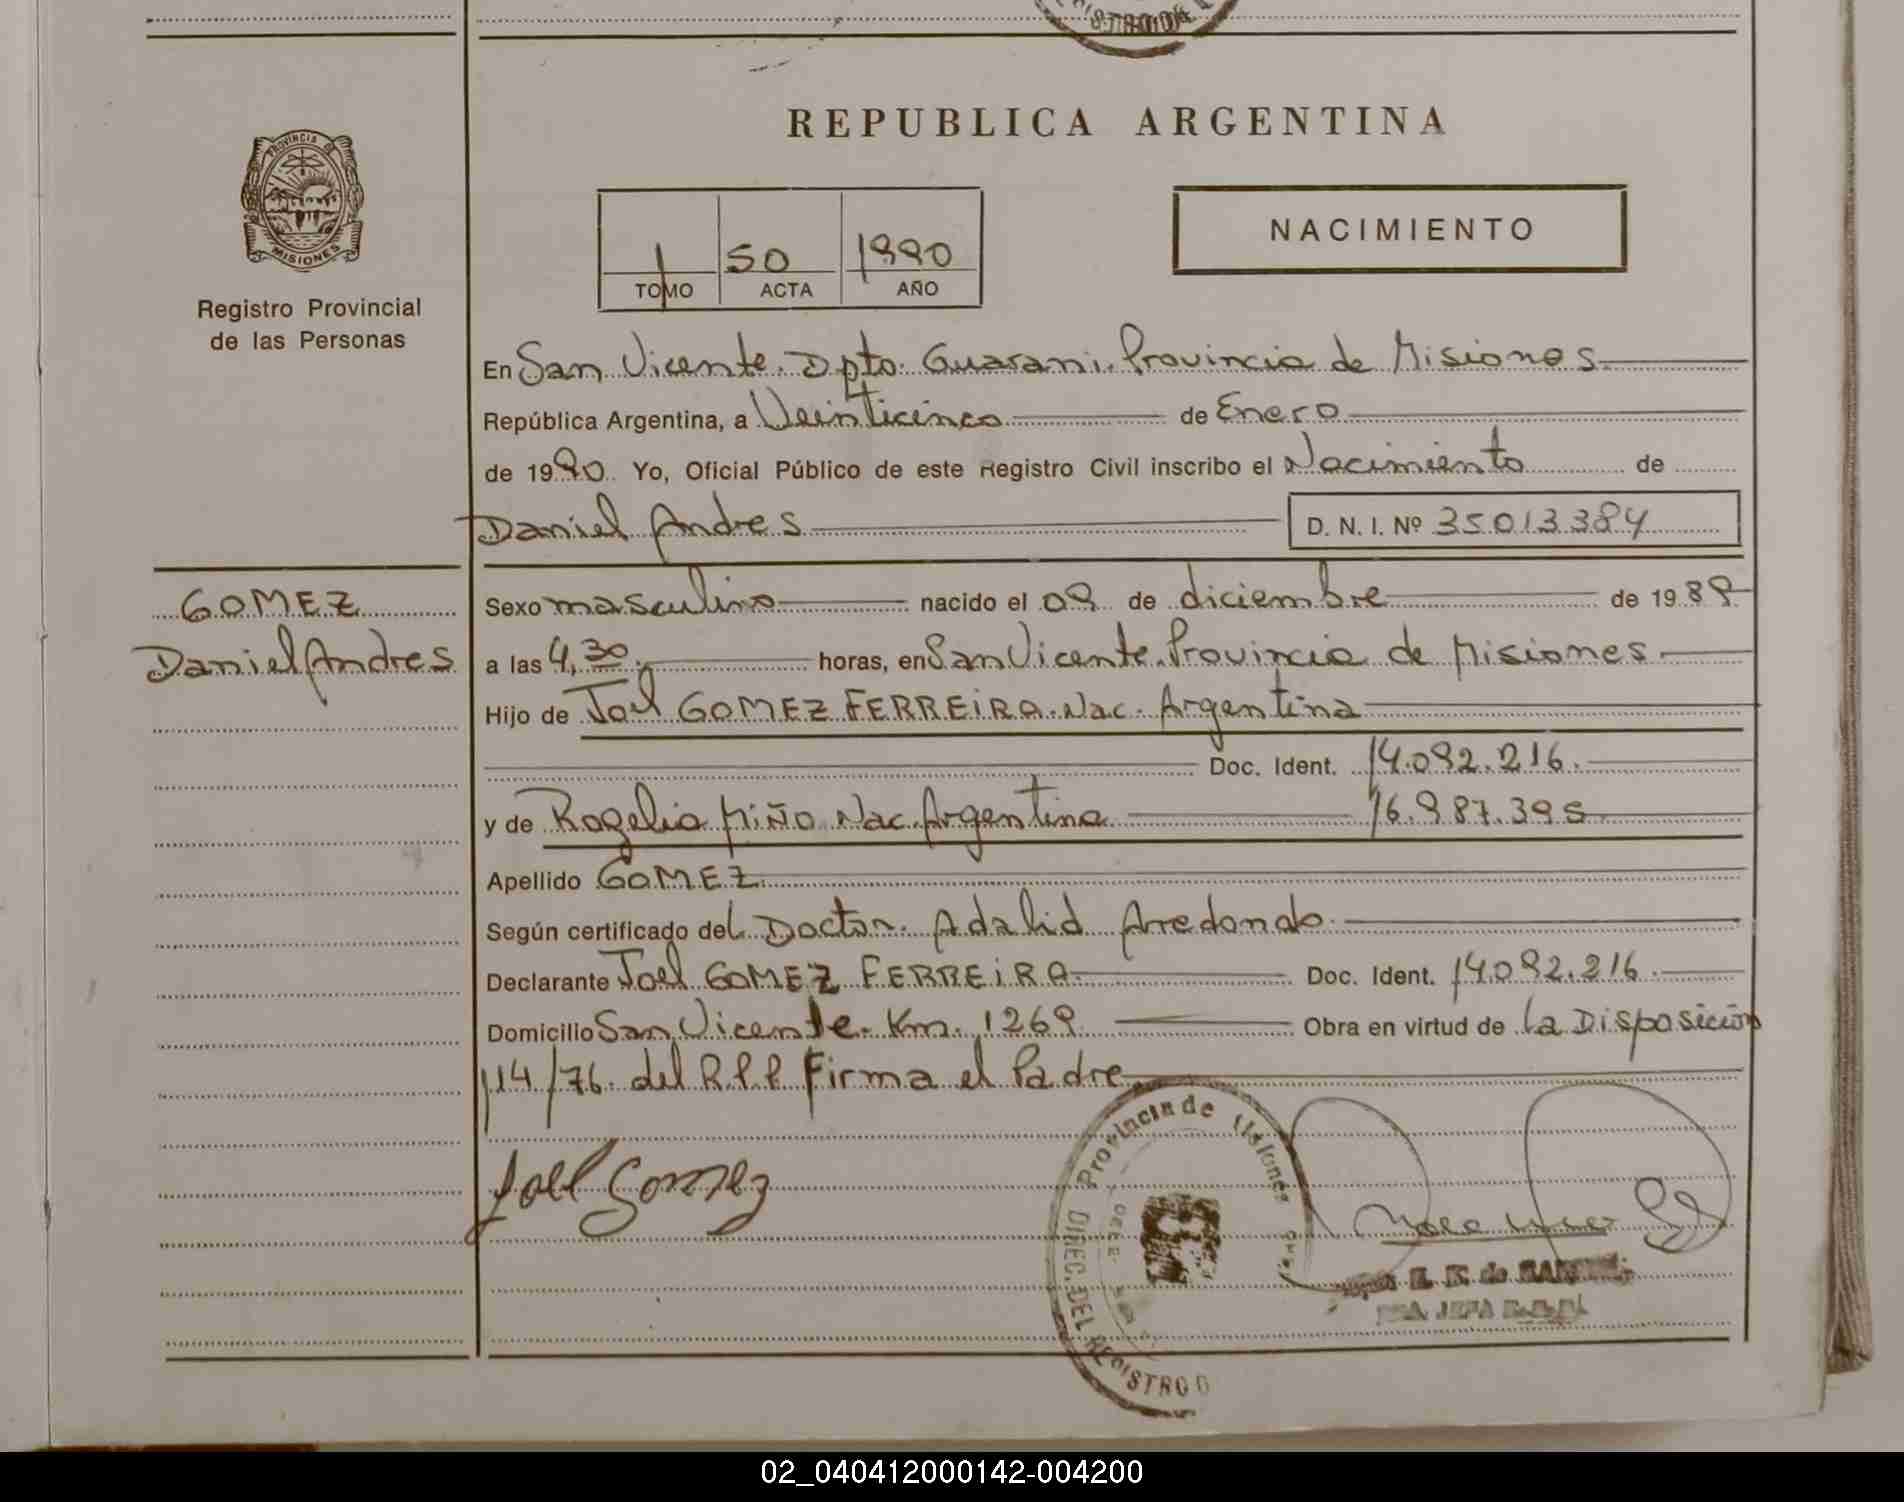 REPUBLICA ARGENTINA
PROVINCIA DE
MISIONES
Registro Provincial
de las Personas
1 50 1990
TOMO ACTA AÑO
NACIMIENTO
En San Vicente. Dpto. Guarani. Provincia de Misiones
República Argentina, a Veinticinco de Enero
de 1990. Yo, Oficial Público de este Registro Civil inscribo el Nacimiento de
Daniel Andres D. N. I. Nº 35013384
GOMEZ
Daniel Andres
Sexo masculino nacido el 09 de diciembre de 1989
a las 4,30 horas, en San Vicente. Provincia de Misiones
Hijo de Joel GOMEZ FERREIRA. Nac. Argentina
Doc. Ident. 14.092.216.
y de Rogelia Miño Nac. Argentina 16.987.395
Apellido GOMEZ
Según certificado del Doctor. Adalid Arredondo
Declarante Joel GOMEZ FERREIRA Doc. Ident. 14.092.216.
Domicilio San Vicente. Km. 1269 Obra en virtud de la Disposición
114/76. del R.P.P. Firma el Padre
Joel Gomez
Provincia de Misiones
DIREC. DEL REGISTRO
02_040412000142-004200